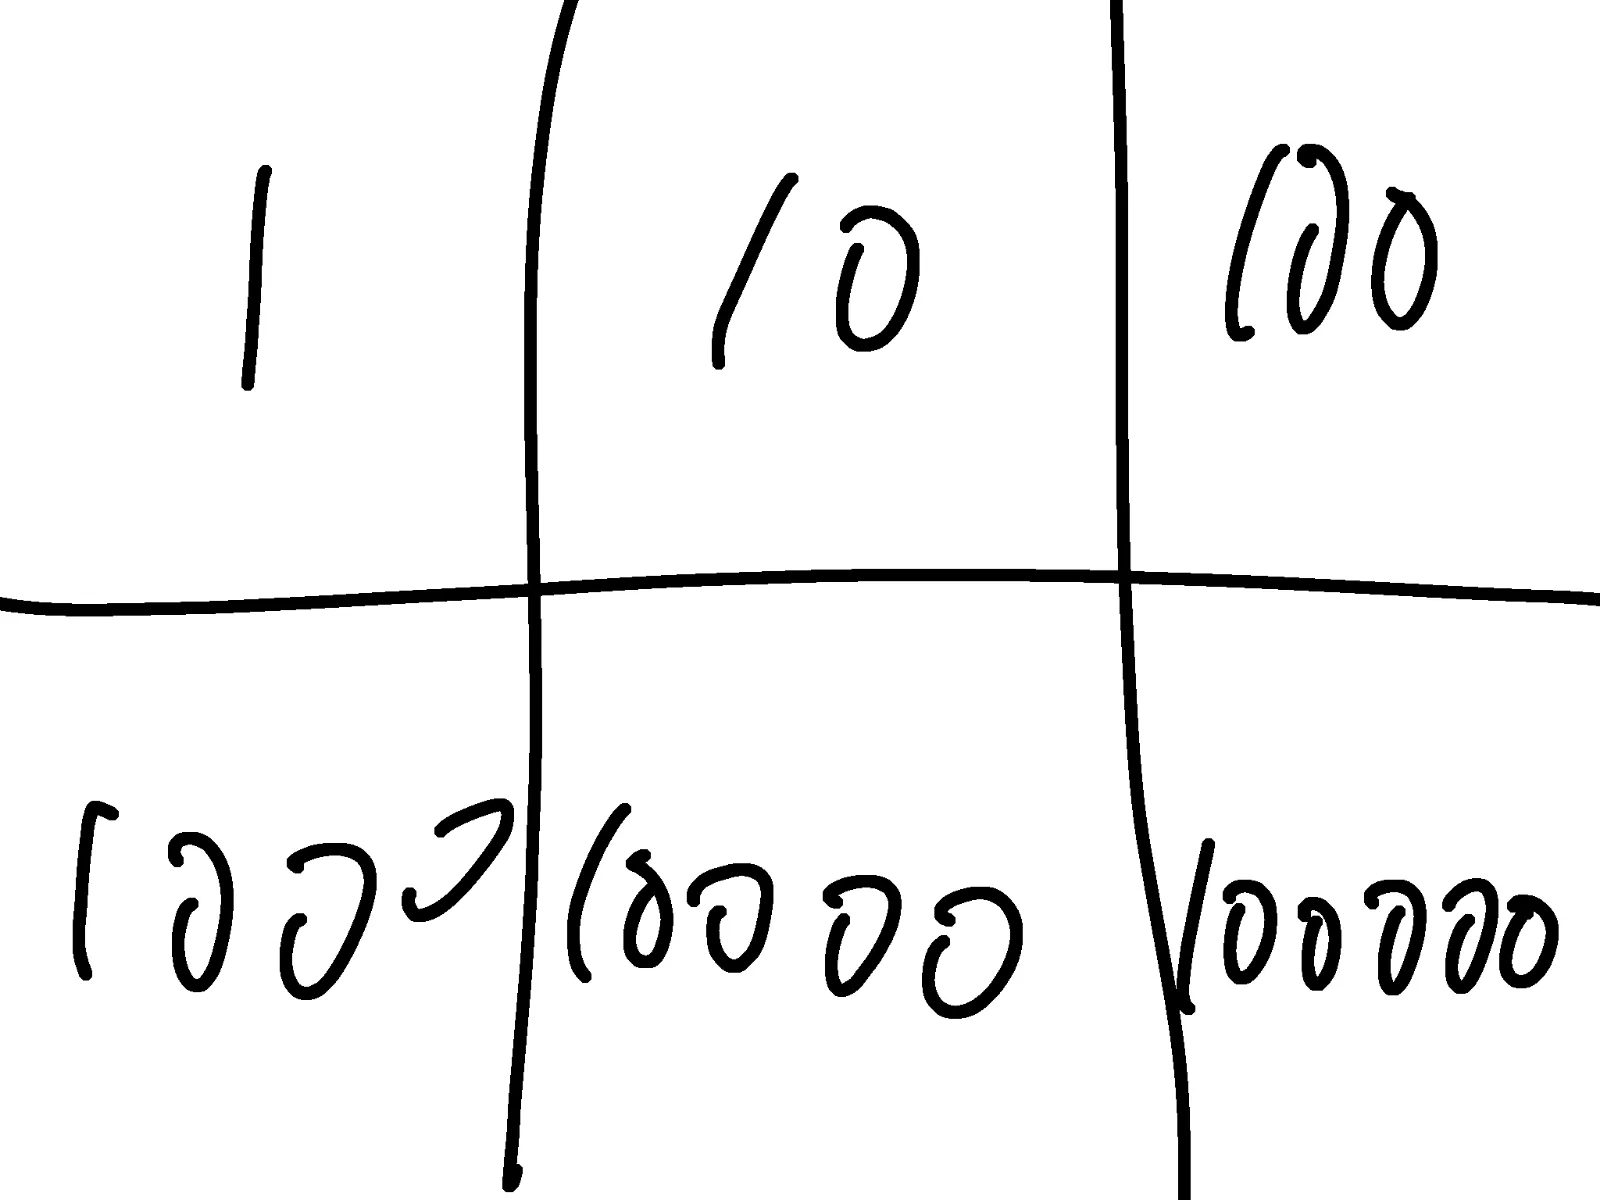 1 10 100
1000 10000 100000